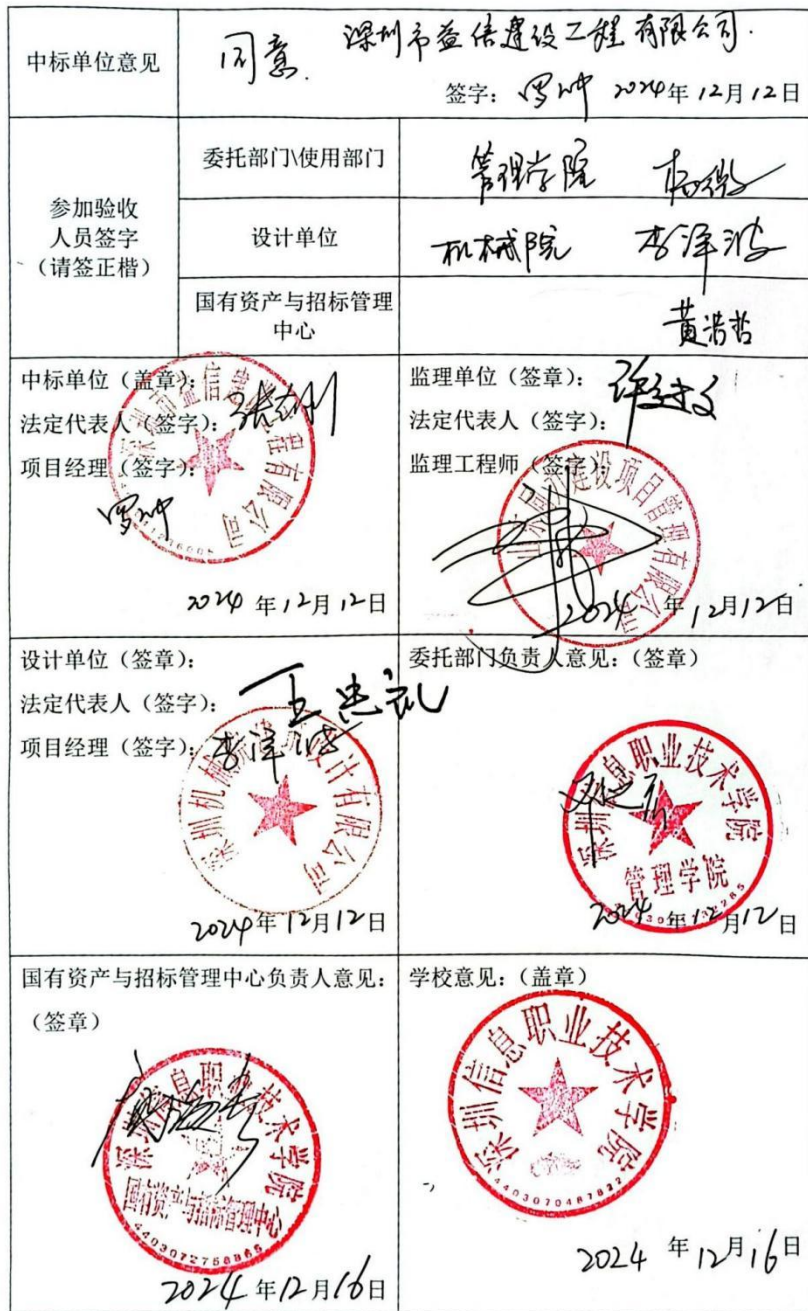 中标单位意见
同意. 深圳市益信建设工程有限公司.
签字: 罗冲 2024年12月12日
参加验收
人员签字
(请签正楷)
委托部门\使用部门
管理学院 杨微
设计单位
机械院 李泽波
国有资产与招标管理
中心
黄浩哲
中标单位（盖章）:
法定代表人（签字）:
项目经理（签字）:
罗冲
深圳市益信建设工程有限公司
2024年12月12日
监理单位（签章）:
法定代表人（签字）:
监理工程师（签字）:
建设项目管理有限公司
2024年12月12日
设计单位（签章）:
法定代表人（签字）: 王忠礼
项目经理（签字）: 李泽波
深圳机械院建筑设计有限公司
2024年12月12日
委托部门负责人意见:（签章）
深圳信息职业技术学院
管理学院
2024年12月12日
国有资产与招标管理中心负责人意见:
（签章）
深圳信息职业技术学院
国有资产与招标管理中心
4403072758865
2024年12月16日
学校意见:（盖章）
深圳信息职业技术学院
4403070487822
2024年12月16日